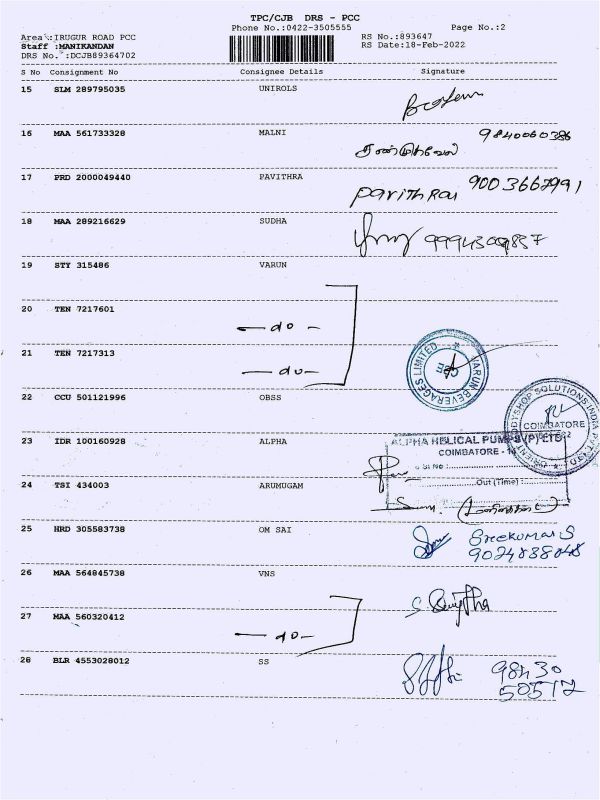 TPC/CJB DRS - PCC
Phone No.:0422-3505555 Page No.:2
Area :IRUGUR ROAD PCC RS No.:893647
Staff :MANIKANDAN RS Date:18-Feb-2022
DRS No. :DCJB89364702
S No Consignment No Consignee Details Signature
15 SLM 289795035 UNIROLS
16 MAA 561733328 MALNI 9840060386
சண்முகவேல்
17 PRD 2000049440 PAVITHRA 9003667991
Pavithra
18 MAA 289216629 SUDHA
9994309857
19 STY 315486 VARUN
20 TEN 7217601
- do -
21 TEN 7217313
- do -
VARUN BEVERAGES LIMITED
CBE
22 CCU 501121996 OBSS
BODYSHOP SOLUTIONS INDIA
COIMBATORE
23 IDR 100160928 ALPHA
ALPHA HELICAL PUMPS (P) LTD
COIMBATORE - 14
Sl No :
Out (Time) :
24 TSI 434003 ARUMUGAM
25 HRD 305583738 OM SAI
Sreekumar S
9024888048
26 MAA 564845738 VNS
27 MAA 560320412
- do -
28 BLR 4553028012 SS
98430
50512